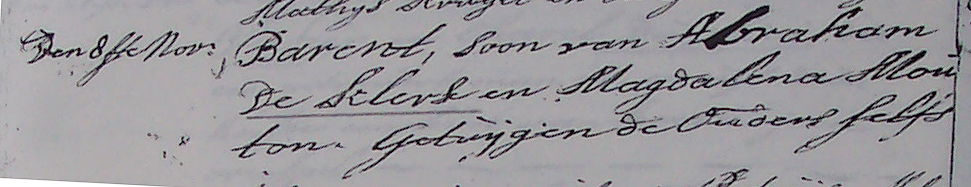 Mathijs Kruger en
Den 8ste Nov: Barent, Soon van Abraham
De Klerk en Magdalena Mou
ton. Getuijgen de Ouders selfs